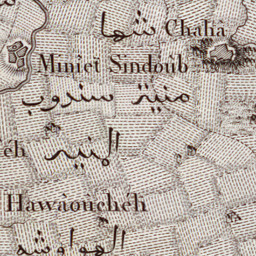 شها Chalia
Miniet Sindoub
منية سندوب
المنيه
éh
Hawâouchéh
الهواوشه